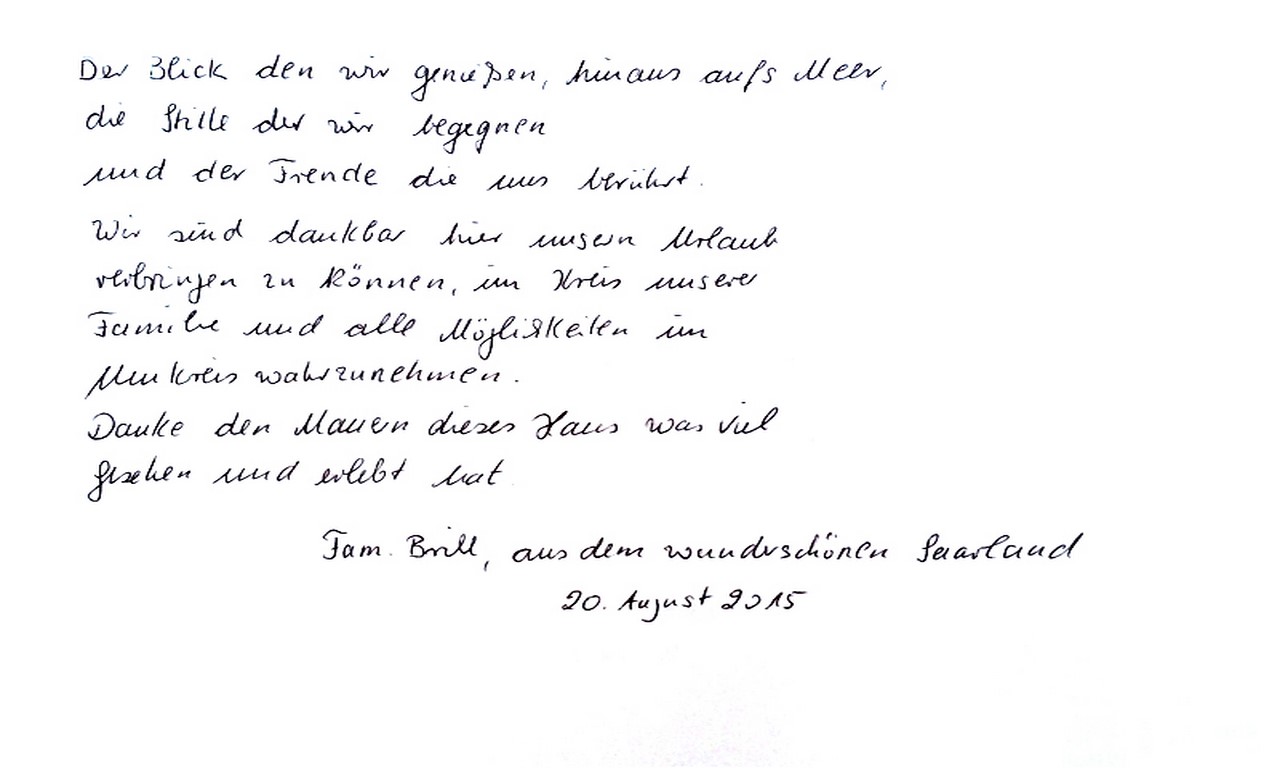 Der Blick den wir genießen, hinaus aufs Meer,
die Stille der wir begegnen
und der Freude die uns berührt.
Wir sind dankbar hier unsern Urlaub
verbringen zu können, im Kreis unserer
Familie und alle Möglichkeiten im
Umkreis wahrzunehmen.
Danke den Mauern dieses Haus was viel
gesehen und erlebt hat
Fam. Brill, aus dem wunderschönen Saarland
20. August 2015